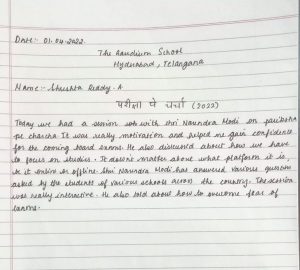 Date:- 01-04-2022
The Gaudium School
Hyderabad, Telangana
Name:- Shushta Reddy. A
परीक्षा पे चर्चा (2022)
Today we had a session with shri Narendra Modi on pariksha
pe charcha It was really motivation and helped me gain confidence
for the coming board exams. He also discussed about how we have
to focus on studies. It doesn't matter about what platform it is,
be it online or offline. Shri Narendra Modi has answered various questions
asked by the students of various schools across the country. The session
was really interactive. He also told about how to overcome fear of
exams.